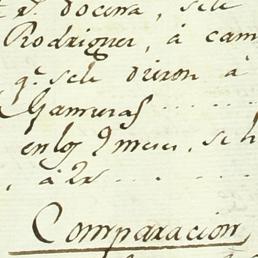 docena, se le
Rodriguez, á cam
q.e se le dieron á
Gamuzas
en los 9 meses, se h
, á 2 r.s
Comparacion